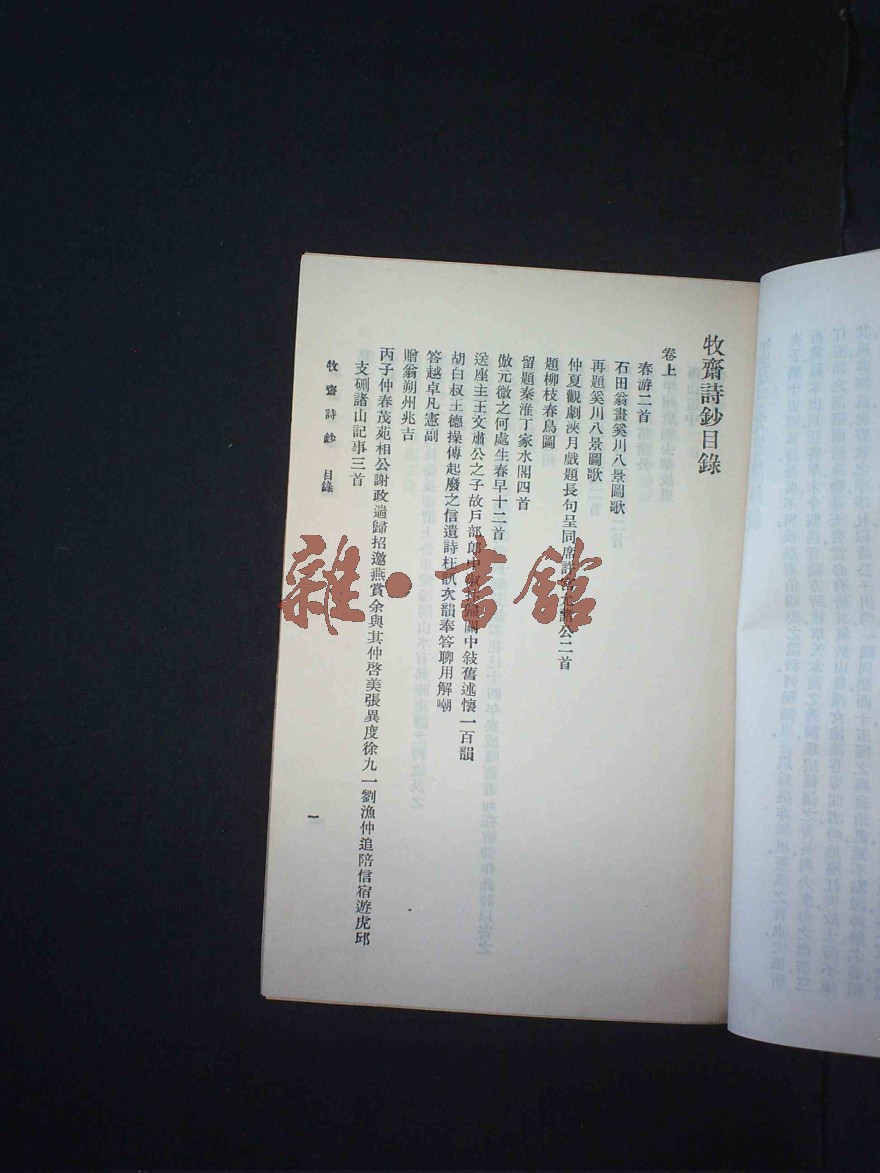 牧齋詩鈔目錄
卷上
春游二首
石田翁畫奚川八景圖歌
再題奚川八景圖歌
仲夏觀劇浹月戲題長句呈同席許宮允諸公二首
題柳枝春鳥圖
留題秦淮丁家水閣四首
倣元微之何處生春早十二首
送座主王文肅公之子故戶部郎中淑抃歸關中敍舊述懷一百韻
胡白叔王德操傳起廢之信遺詩枉訊次韻奉答聊用解嘲
答越卓凡憲副
贈翁朔州兆吉
丙子仲春茂苑相公謝政遄歸招邀燕賞余與其仲啓美張異度徐九一劉漁仲追陪信宿遊虎邱
支硎諸山記事三首
牧齋詩鈔 目錄
一
雜·書館